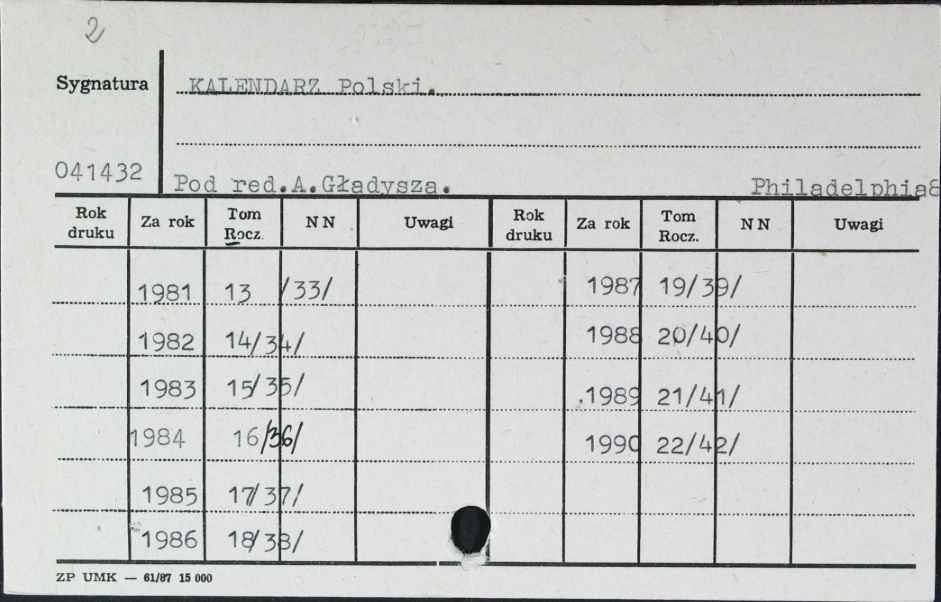 2
Sygnatura KALENDARZ Polski.
041432 Pod red.A.Gładysza. Philadelphia8
Rok druku Za rok Tom Rocz. N N Uwagi Rok druku Za rok Tom Rocz. N N Uwagi
1981 13 /33/ 1987 19/39/
1982 14/34/ 1988 20/40/
1983 15/35/ 1989 21/41/
1984 16/36/ 1990 22/42/
1985 17/37/
1986 18/38/
ZP UMK — 61/87 15 000